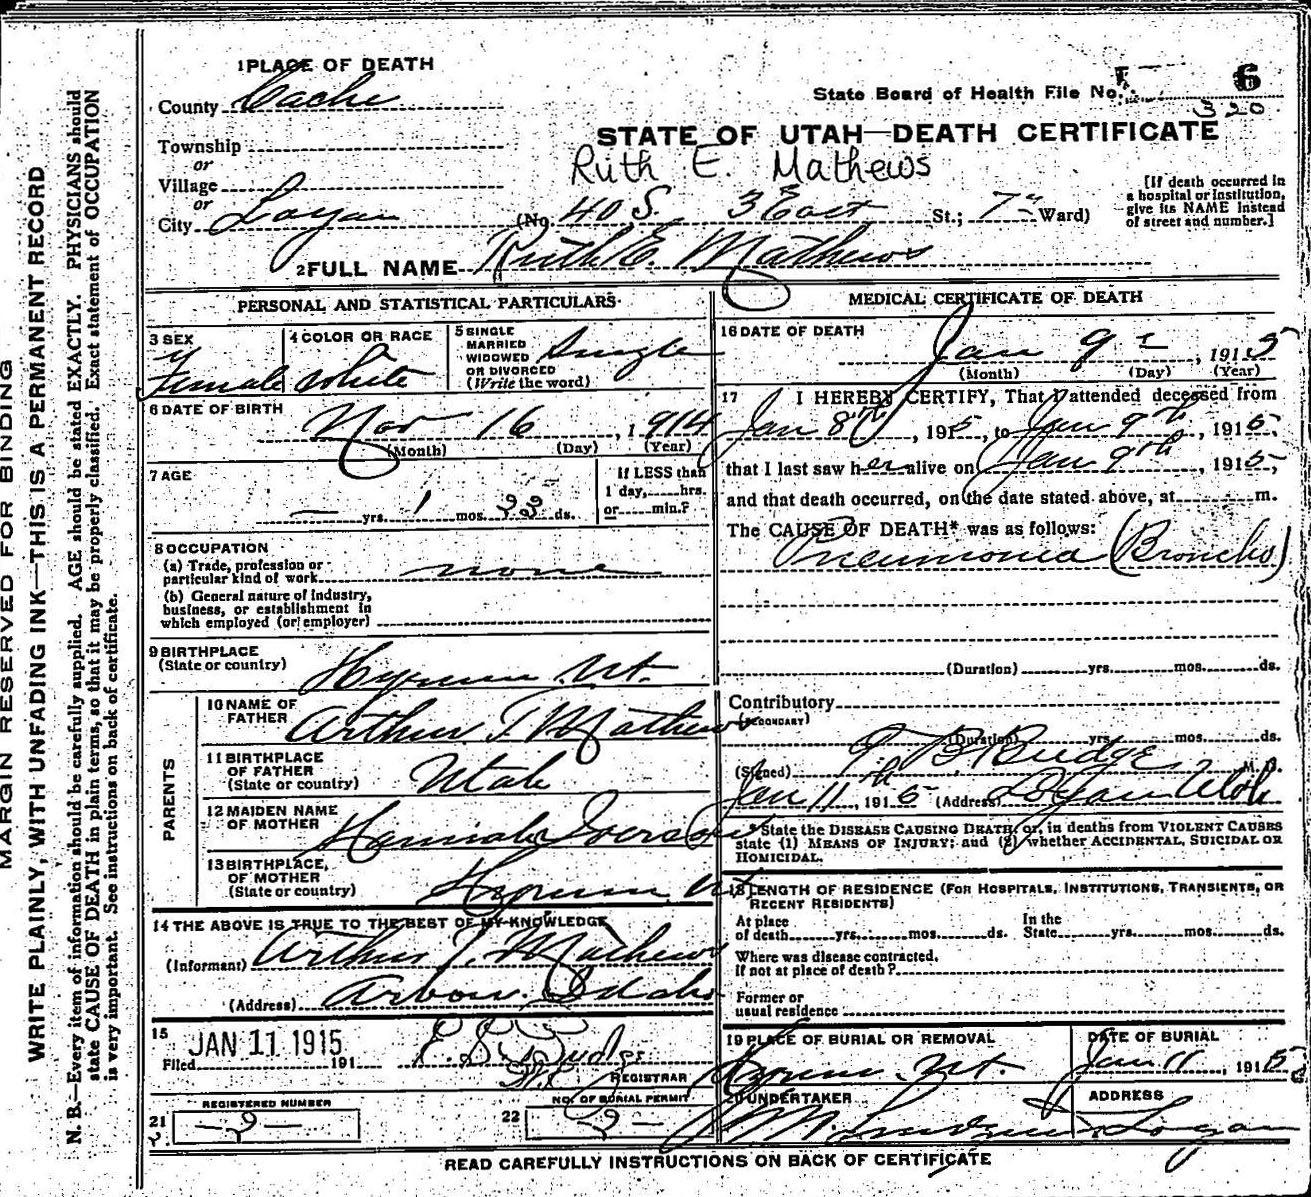 MARGIN RESERVED FOR BINDING
WRITE PLAINLY, WITH UNFADING INK—THIS IS A PERMANENT RECORD
N. B.—Every item of information should be carefully supplied. AGE should be stated EXACTLY. PHYSICIANS should
state CAUSE OF DEATH in plain terms, so that it may be properly classified. Exact statement of OCCUPATION
is very important. See instructions on back of certificate.
1 PLACE OF DEATH
County Cache
State Board of Health File No. 6
20
STATE OF UTAH—DEATH CERTIFICATE
Ruth E. Mathews
Township
or
Village
or
City Logan (No. 40 S. 3 East St.; 7th Ward)
[If death occurred in
a hospital or institution,
give its NAME instead
of street and number.]
2 FULL NAME Ruth E. Mathews
PERSONAL AND STATISTICAL PARTICULARS
3 SEX Female
4 COLOR OR RACE White
5 SINGLE
MARRIED
WIDOWED
OR DIVORCED
(Write the word) Single
6 DATE OF BIRTH
Nov 16, 1914
(Month) (Day) (Year)
7 AGE
— yrs. 1 mos. 23 ds.
If LESS than
1 day, hrs.
or min.?
8 OCCUPATION
(a) Trade, profession or
particular kind of work none
(b) General nature of industry,
business, or establishment in
which employed (or employer)
9 BIRTHPLACE
(State or country) Hyrum Ut.
PARENTS
10 NAME OF
FATHER Arthur T. Mathews
11 BIRTHPLACE
OF FATHER
(State or country) Utah
12 MAIDEN NAME
OF MOTHER Hannah
13 BIRTHPLACE
OF MOTHER
(State or country) Hyrum, Ut
14 THE ABOVE IS TRUE TO THE BEST OF MY KNOWLEDGE
(Informant) Arthur T. Mathews
(Address) Arbon, Idaho
15
Filed JAN 11 1915 191
REGISTRAR
21 REGISTERED NUMBER
—2—
22 NO. OF BURIAL PERMIT
2—
MEDICAL CERTIFICATE OF DEATH
16 DATE OF DEATH
Jan 9th, 1915
(Month) (Day) (Year)
17 I HEREBY CERTIFY, That I attended deceased from
Jan 8th, 1915, to Jan 9th, 1915,
that I last saw her alive on Jan 9th, 1915,
and that death occurred, on the date stated above, at m.
The CAUSE OF DEATH* was as follows:
Pneumonia (Broncho)
(Duration) yrs. mos. ds.
Contributory
(SECONDARY)
(Duration) yrs. mos. ds.
(Signed) Budge M. D.
Jan 11th, 1915 (Address) Logan Utah
*State the DISEASE CAUSING DEATH, or, in deaths from VIOLENT CAUSES
state (1) MEANS OF INJURY; and (2) whether ACCIDENTAL, SUICIDAL OR
HOMICIDAL.
18 LENGTH OF RESIDENCE (FOR HOSPITALS, INSTITUTIONS, TRANSIENTS, OR
RECENT RESIDENTS)
At place
of death yrs. mos. ds.
In the
State yrs. mos. ds.
Where was disease contracted.
If not at place of death?
Former or
usual residence
19 PLACE OF BURIAL OR REMOVAL
Hyrum, Ut.
DATE OF BURIAL
Jan 11, 1915
20 UNDERTAKER
ADDRESS
Logan
READ CAREFULLY INSTRUCTIONS ON BACK OF CERTIFICATE